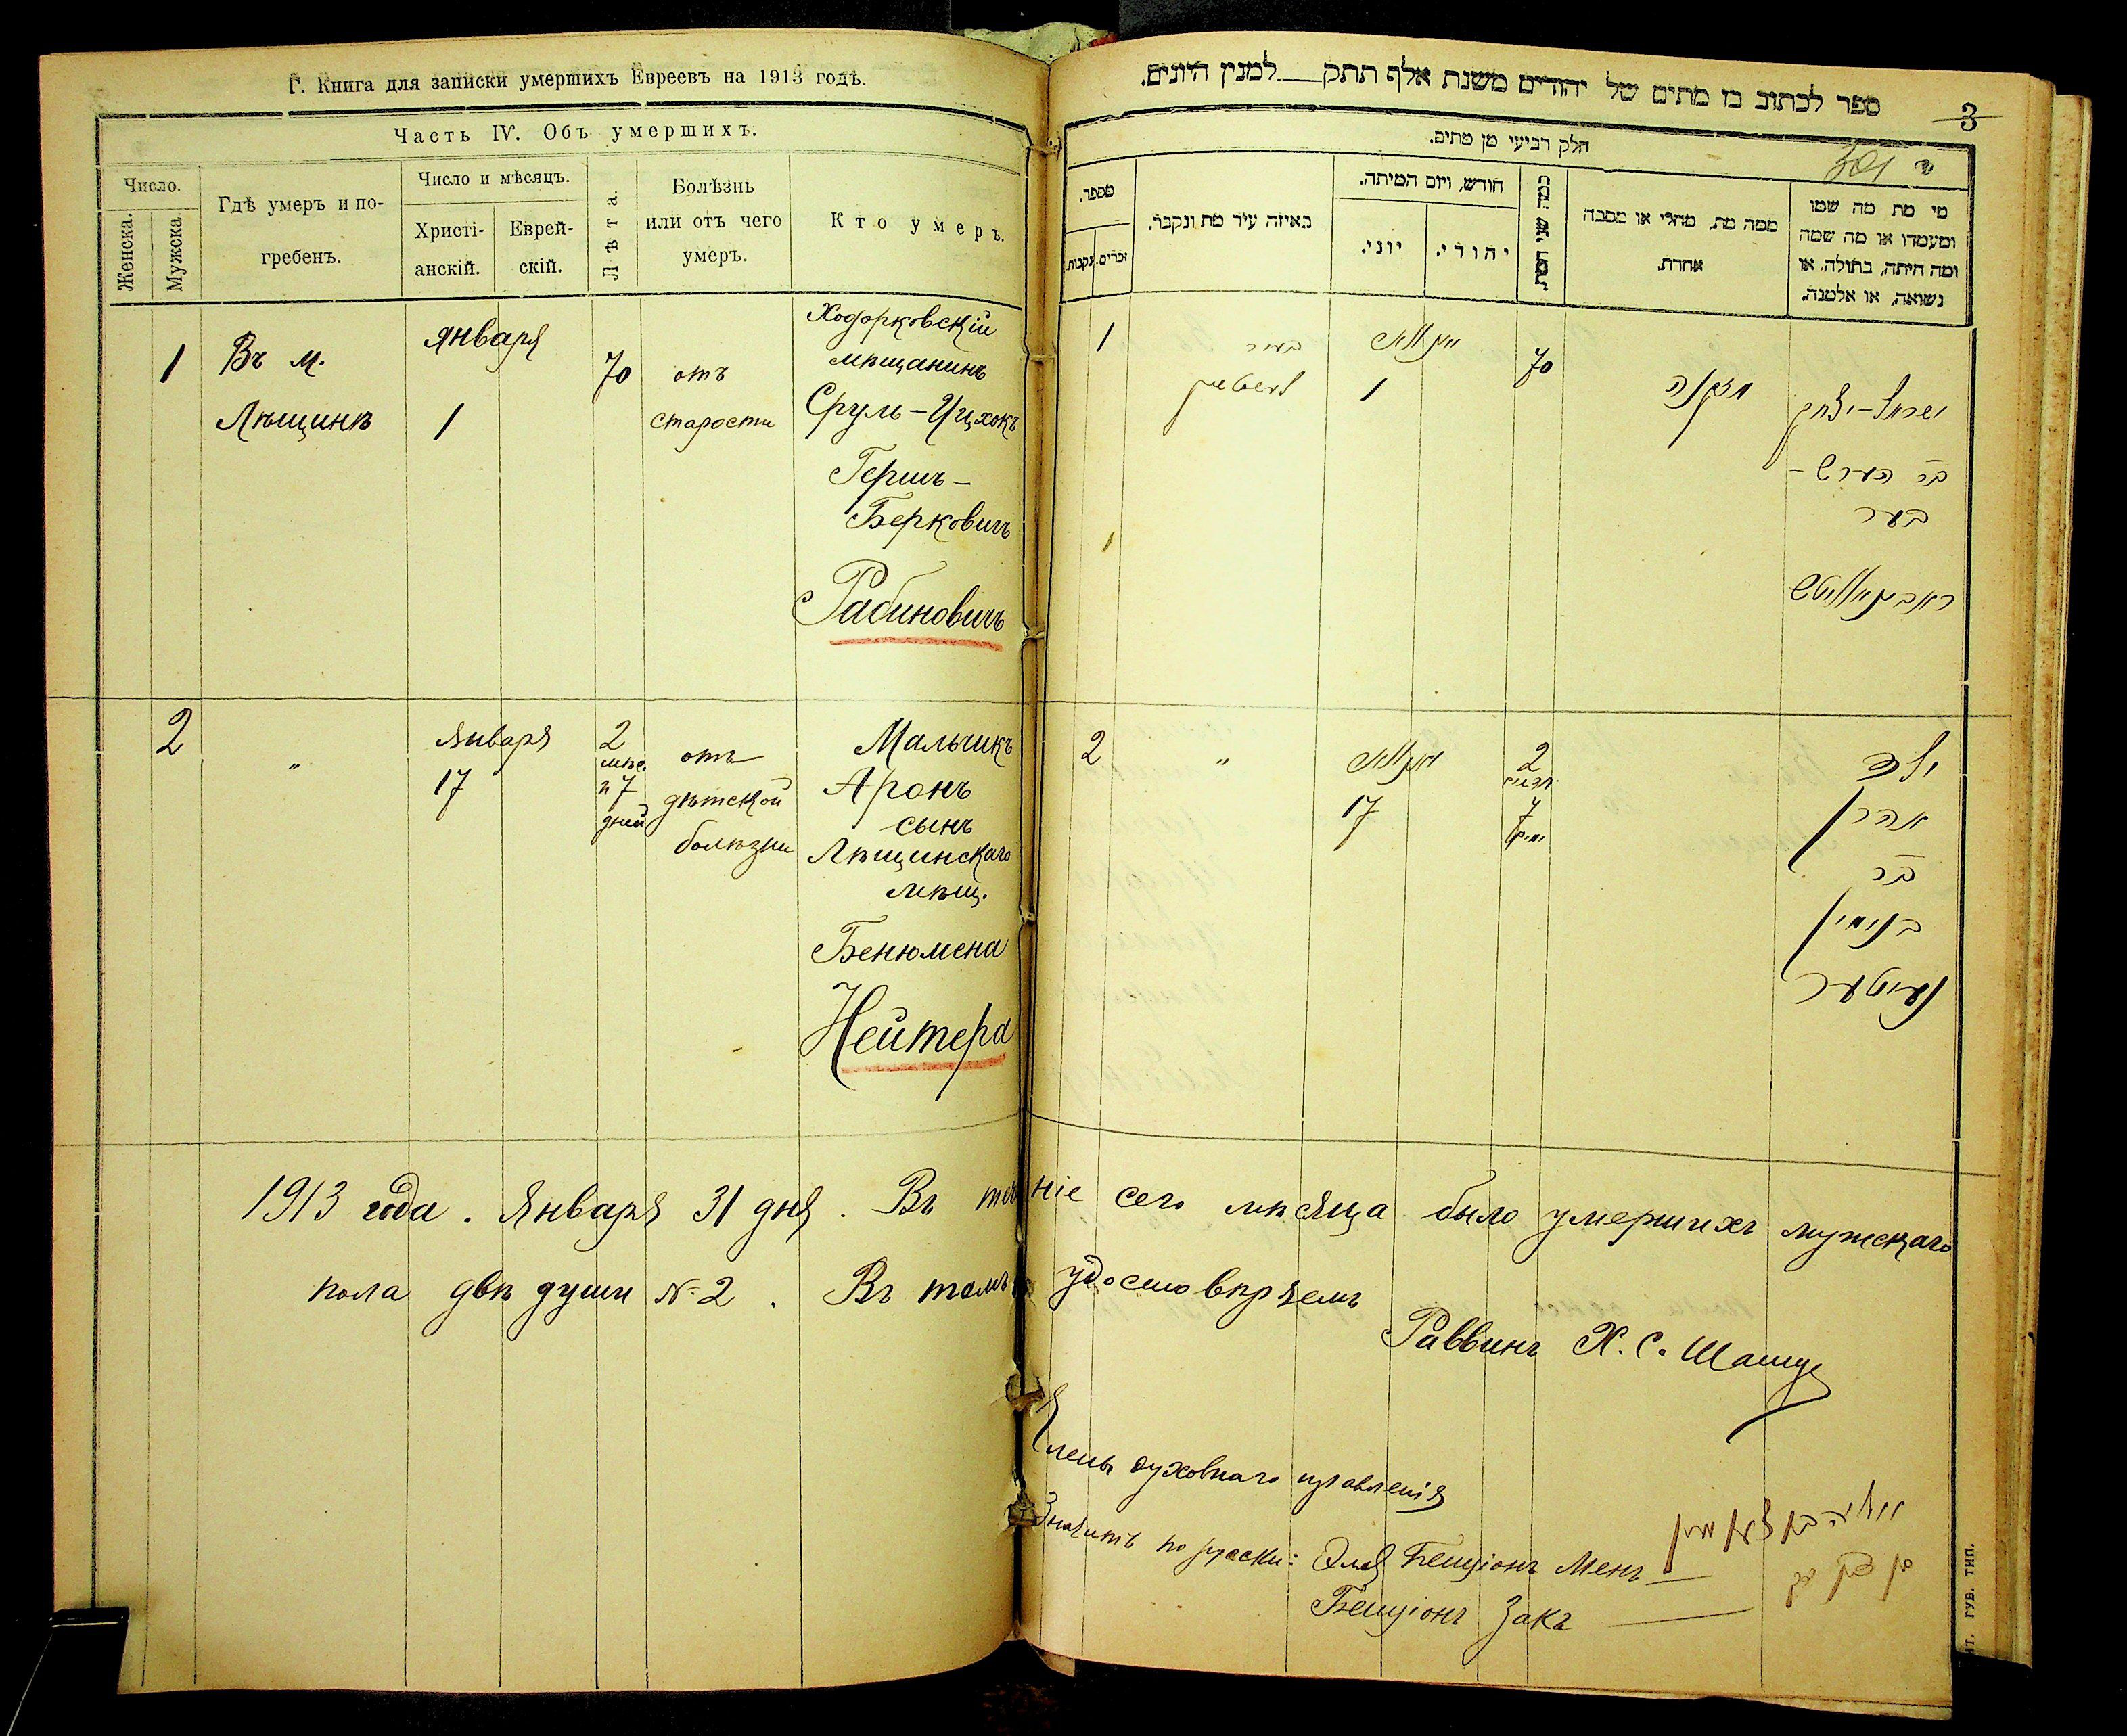 Г. Книга для записки умершихъ Евреевъ на 1913 годъ.
Часть IV. Объ умершихъ.
Число.
Женска.
Мужска.
Гдѣ умеръ и по-
гребенъ.
Число и мѣсяцъ.
Христі-
анскій.
Еврей-
скій.
Лѣта.
Болѣзнь
или отъ чего
умеръ.
Кто умеръ.
1
Въ м.
Лѣщинѣ
Января
1
70
отъ
старости
Ходорковскій
мѣщанинъ
Сруль-Ицхокъ
Гершъ-
Берковичъ
Рабиновичъ
2
"
Января
17
2
мѣс.
и 7
дней
отъ
дѣтской
болѣзни
Мальчикъ
Аронъ
сынъ
Лѣщинскаго
мѣщ.
Бенюмена
Нейтера
ספר לכתוב בו מתים של יהודים משנת אלף תתק למנין היונים.
3
חלק רביעי מן מתים.
מספר.
זכרים.
נקבות.
באיזה עיר מת ונקבר.
חודש, ויום המיתה.
יוני.
יהודי.
כמה שני המת.
ממה מת, מחלי או מסבה
אחרת.
מי מת מה שמו
ומעמדו או מה שמה
ומה היתה, בתולה, או
נשואה, או אלמנה.
1
בעיר
יאנואר
1
70
מזקנה
ישראל-יצחק
בר הערש-
בער
ראבינאוויטש
1
2
"
יאנואר
17
2
חדשים
7
ימים
ילד
אהרן
בר
בנימין
נייטער
1913 года. Января 31 дня. Въ теченіе сего мѣсяца было умершихъ мужскаго
пола двѣ души № 2. Въ томъ удостовѣряемъ
Раввинъ Х. С.
Члены духовнаго правленія
Значитъ по русски: Эля Бенціонъ Менъ
Бенціонъ Закъ
ГУБ. ТИП.